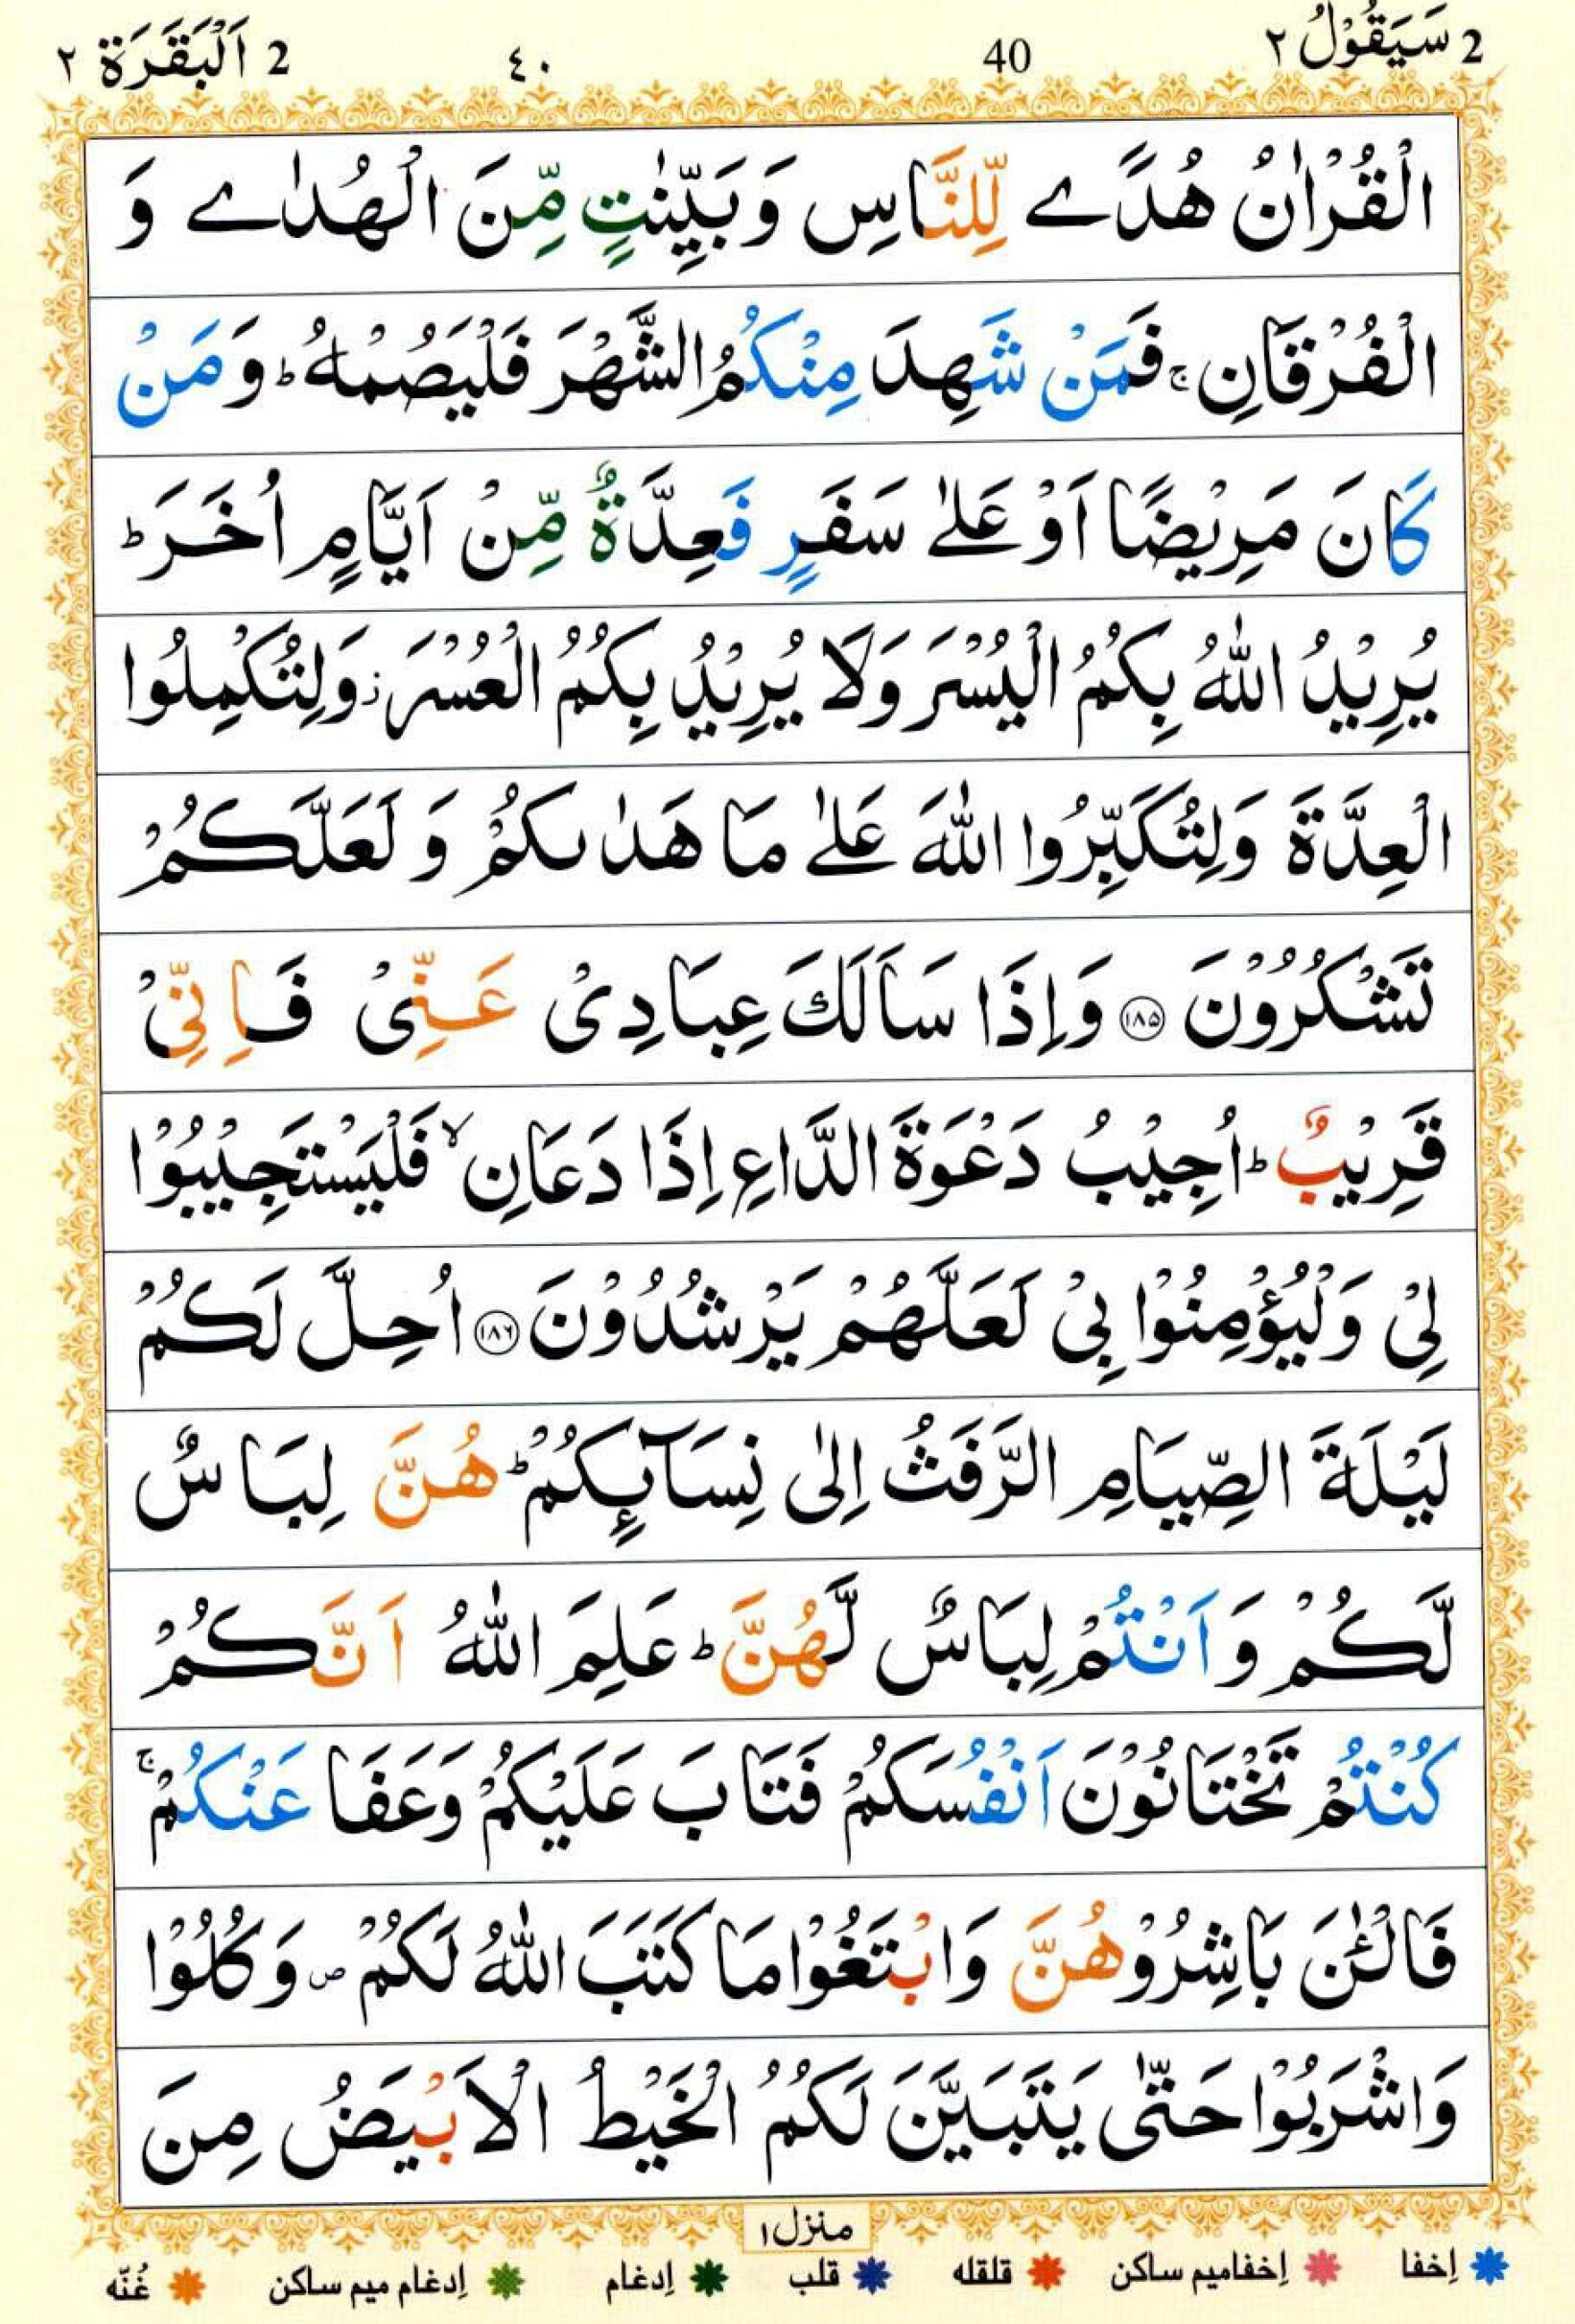 2 سَيَقُوْلُ ٢
40
٤٠
2 اَلْبَقَرَة ٢
الْقُرْاٰنُ هُدًے لِّلنَّاسِ وَبَيِّنٰتٍ مِّنَ الْهُدٰے وَ
الْفُرْقَانِ ۚ فَمَنْ شَهِدَ مِنْكُمُ الشَّهْرَ فَلْيَصُمْهُ ؕ وَمَنْ
كَانَ مَرِيْضًا اَوْ عَلٰے سَفَرٍ فَعِدَّةٌ مِّنْ اَيَّامٍ اُخَرَ ؕ
يُرِيْدُ اللّٰهُ بِكُمُ الْيُسْرَ وَلَا يُرِيْدُ بِكُمُ الْعُسْرَ ز وَلِتُكْمِلُوا
الْعِدَّةَ وَلِتُكَبِّرُوا اللّٰهَ عَلٰے مَا هَدٰىكُمْ وَ لَعَلَّكُمْ
تَشْكُرُوْنَ ۝١٨٥ وَاِذَا سَاَلَكَ عِبَادِىْ عَنِّىْ فَاِنِّىْ
قَرِيْبٌ ؕ اُجِيْبُ دَعْوَةَ الدَّاعِ اِذَا دَعَانِ ۙ فَلْيَسْتَجِيْبُوْا
لِىْ وَلْيُؤْمِنُوْا بِىْ لَعَلَّهُمْ يَرْشُدُوْنَ ۝١٨٦ اُحِلَّ لَكُمْ
لَيْلَةَ الصِّيَامِ الرَّفَثُ اِلٰى نِسَآئِكُمْ ؕ هُنَّ لِبَاسٌ
لَّكُمْ وَاَنْتُمْ لِبَاسٌ لَّهُنَّ ؕ عَلِمَ اللّٰهُ اَنَّكُمْ
كُنْتُمْ تَخْتَانُوْنَ اَنْفُسَكُمْ فَتَابَ عَلَيْكُمْ وَعَفَا عَنْكُمْ ۚ
فَالْـٰٔنَ بَاشِرُوْهُنَّ وَابْتَغُوْا مَا كَتَبَ اللّٰهُ لَكُمْ ص وَكُلُوْا
وَاشْرَبُوْا حَتّٰى يَتَبَيَّنَ لَكُمُ الْخَيْطُ الْاَبْيَضُ مِنَ
منزل ١
إخفا إخفامیم ساکن قلقله قلب إدغام إدغام میم ساکن غُنّه